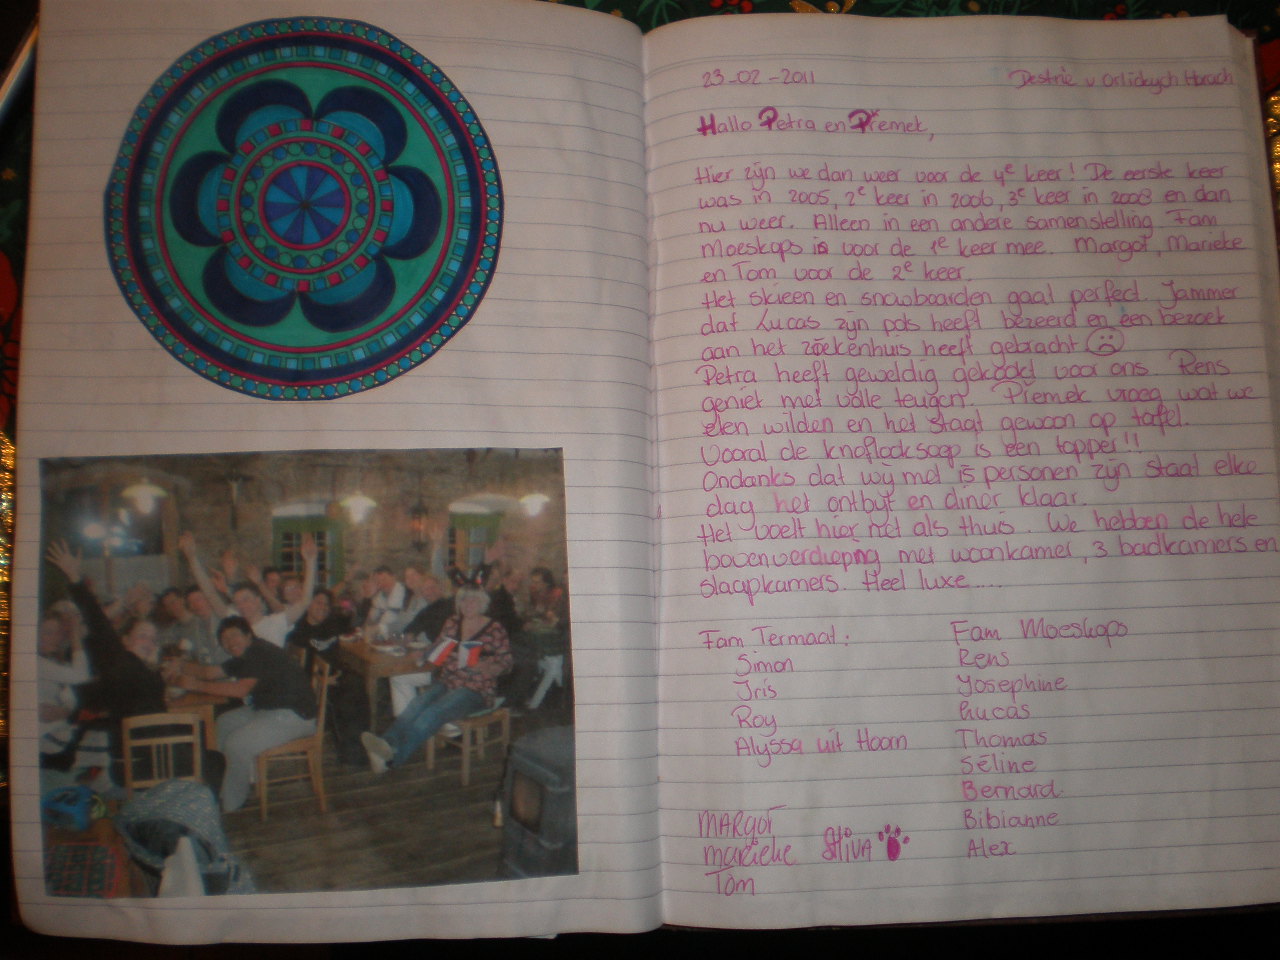 23-02-2011 Destné v Orlických Horách
Hallo Petra en Přemek,
Hier zijn we dan weer voor de 4e keer! De eerste keer
was in 2005, 2e keer in 2006, 3e keer in 2008 en dan
nu weer. Alleen in een andere samenstelling. Fam
Moeskops is voor de 1e keer mee. Margot, Marieke
en Tom voor de 2e keer.
Het skieen en snowboarden gaat perfect. Jammer
dat Lucas zijn pols heeft bezeerd en een bezoek
aan het ziekenhuis heeft gebracht ☹
Petra heeft geweldig gekookt voor ons. Rens
geniet met volle teugen. Přemek vroeg wat we
eten wilden en het staat gewoon op tafel.
Vooral de knoflooksoep is een topper!!
Ondanks dat wij met 15 personen zijn staat elke
dag het ontbijt en diner klaar.
Het voelt hier net als thuis. We hebben de hele
bovenverdieping met woonkamer, 3 badkamers en
slaapkamers. Heel luxe....
Fam Termaat:
Simon
Iris
Roy
Alyssa uit Hoorn
Fam Moeskops
Rens
Yosephine
Lucas
Thomas
Séline
Bernard
Bibianne
Alex
MARGOT
Marieke
Tom
SHIVA